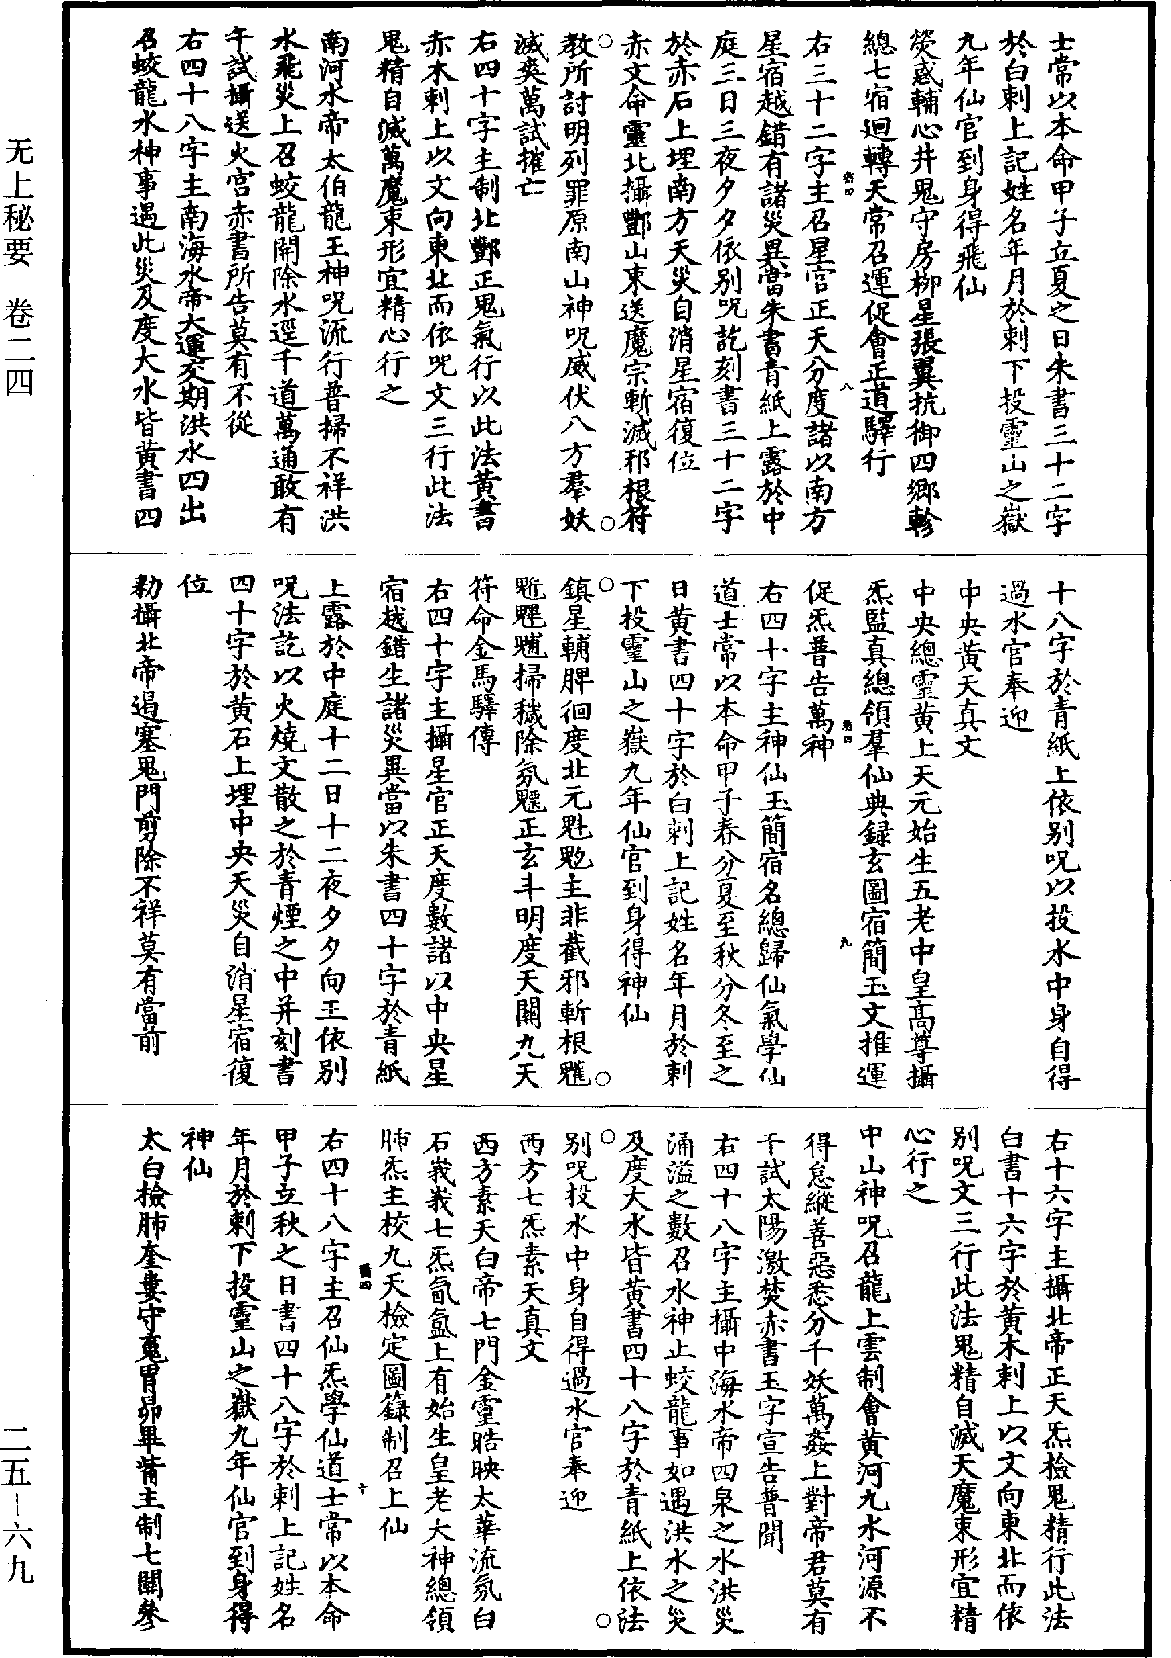 士常以本命甲子立夏之日朱書三十二字
於白刺上記姓名年月於刺下投靈山之嶽
九年仙官到身得飛仙
熒惑輔心井鬼守房柳星張翼抗御四鄉軫
總七宿迴轉天常召運促會正道驛行
右三十二字主召星官正天分度諸以南方
星宿越錯有諸災異當朱書青紙上露於中
庭三日三夜夕夕依別呪訖刻書三十二字
於赤石上埋南方天災自消星宿復位
赤文命靈北攝酆山束送魔宗斬滅邪根符
教所討明列罪原南山神呪威伏八方羣妖
滅爽萬試摧亡
右四十字主制北酆正鬼氣行以此法黃書
赤木刺上以文向東北而依呪文三行此法
鬼精自滅萬魔束形宜精心行之
南河水帝太伯龍王神呪流行普掃不祥洪
水飛災上召蛟龍開除水逕千道萬通敢有
干試攝送火宮赤書所告莫有不從
右四十八字主南海水帝大運交期洪水四出
召蛟龍水神事遇此災及度大水皆黃書四
十八字於青紙上依別呪以投水中身自得
過水官奉迎
中央黃天真文
中央總靈黃上天元始生五老中皇高尊攝
炁監真總領羣仙典録玄圖宿簡玉文推運
促炁普告萬神
右四十字主神仙玉簡宿名總歸仙氣學仙
道士常以本命甲子春分夏至秋分冬至之
日黃書四十字於白刺上記姓名年月於刺
下投靈山之嶽九年仙官到身得神仙
鎮星輔脾徊度北元魁䰢主非截邪斬根魓
䰡魒掃穢除氛魖正玄斗明度天關九天
符命金馬驛傳
右四十字主攝星官正天度數諸以中央星
宿越錯生諸災異當以朱書四十字於青紙
上露於中庭十二日十二夜夕夕向王依別
呪法訖以火燒文散之於青煙之中并刻書
四十字於黃石上埋中央天災自消星宿復
位
勑攝北帝遏塞鬼門剪除不祥莫有當前
右十六字主攝北帝正天炁檢鬼精行此法
白書十六字於黃木刺上以文向東北而依
別呪文三行此法鬼精自滅天魔束形宜精
心行之
中山神呪召龍上雲制會黃河九水河源不
得怠縱善惡悉分千妖萬姦上對帝君莫有
干試太陽激焚赤書玉字宣告普聞
右四十八字主攝中海水帝四泉之水洪災
涌溢之數召水神止蛟龍事如遇洪水之災
及度大水皆黃書四十八字於青紙上依法
別呪投水中身自得過水官奉迎
西方七炁素天真文
西方素天白帝七門金靈晧映太華流氛白
石峩峩七炁氤氳上有始生皇老大神總領
肺炁主校九天檢定圖籙制召上仙
右四十八字主召仙炁學仙道士常以本命
甲子立秋之日書四十八字於刺上記姓名
年月於刺下投靈山之嶽九年仙官到身得
神仙
太白撿肺奎婁守嵬胃昴畢觜主制七關參
无上秘要 卷二四
二五—六九